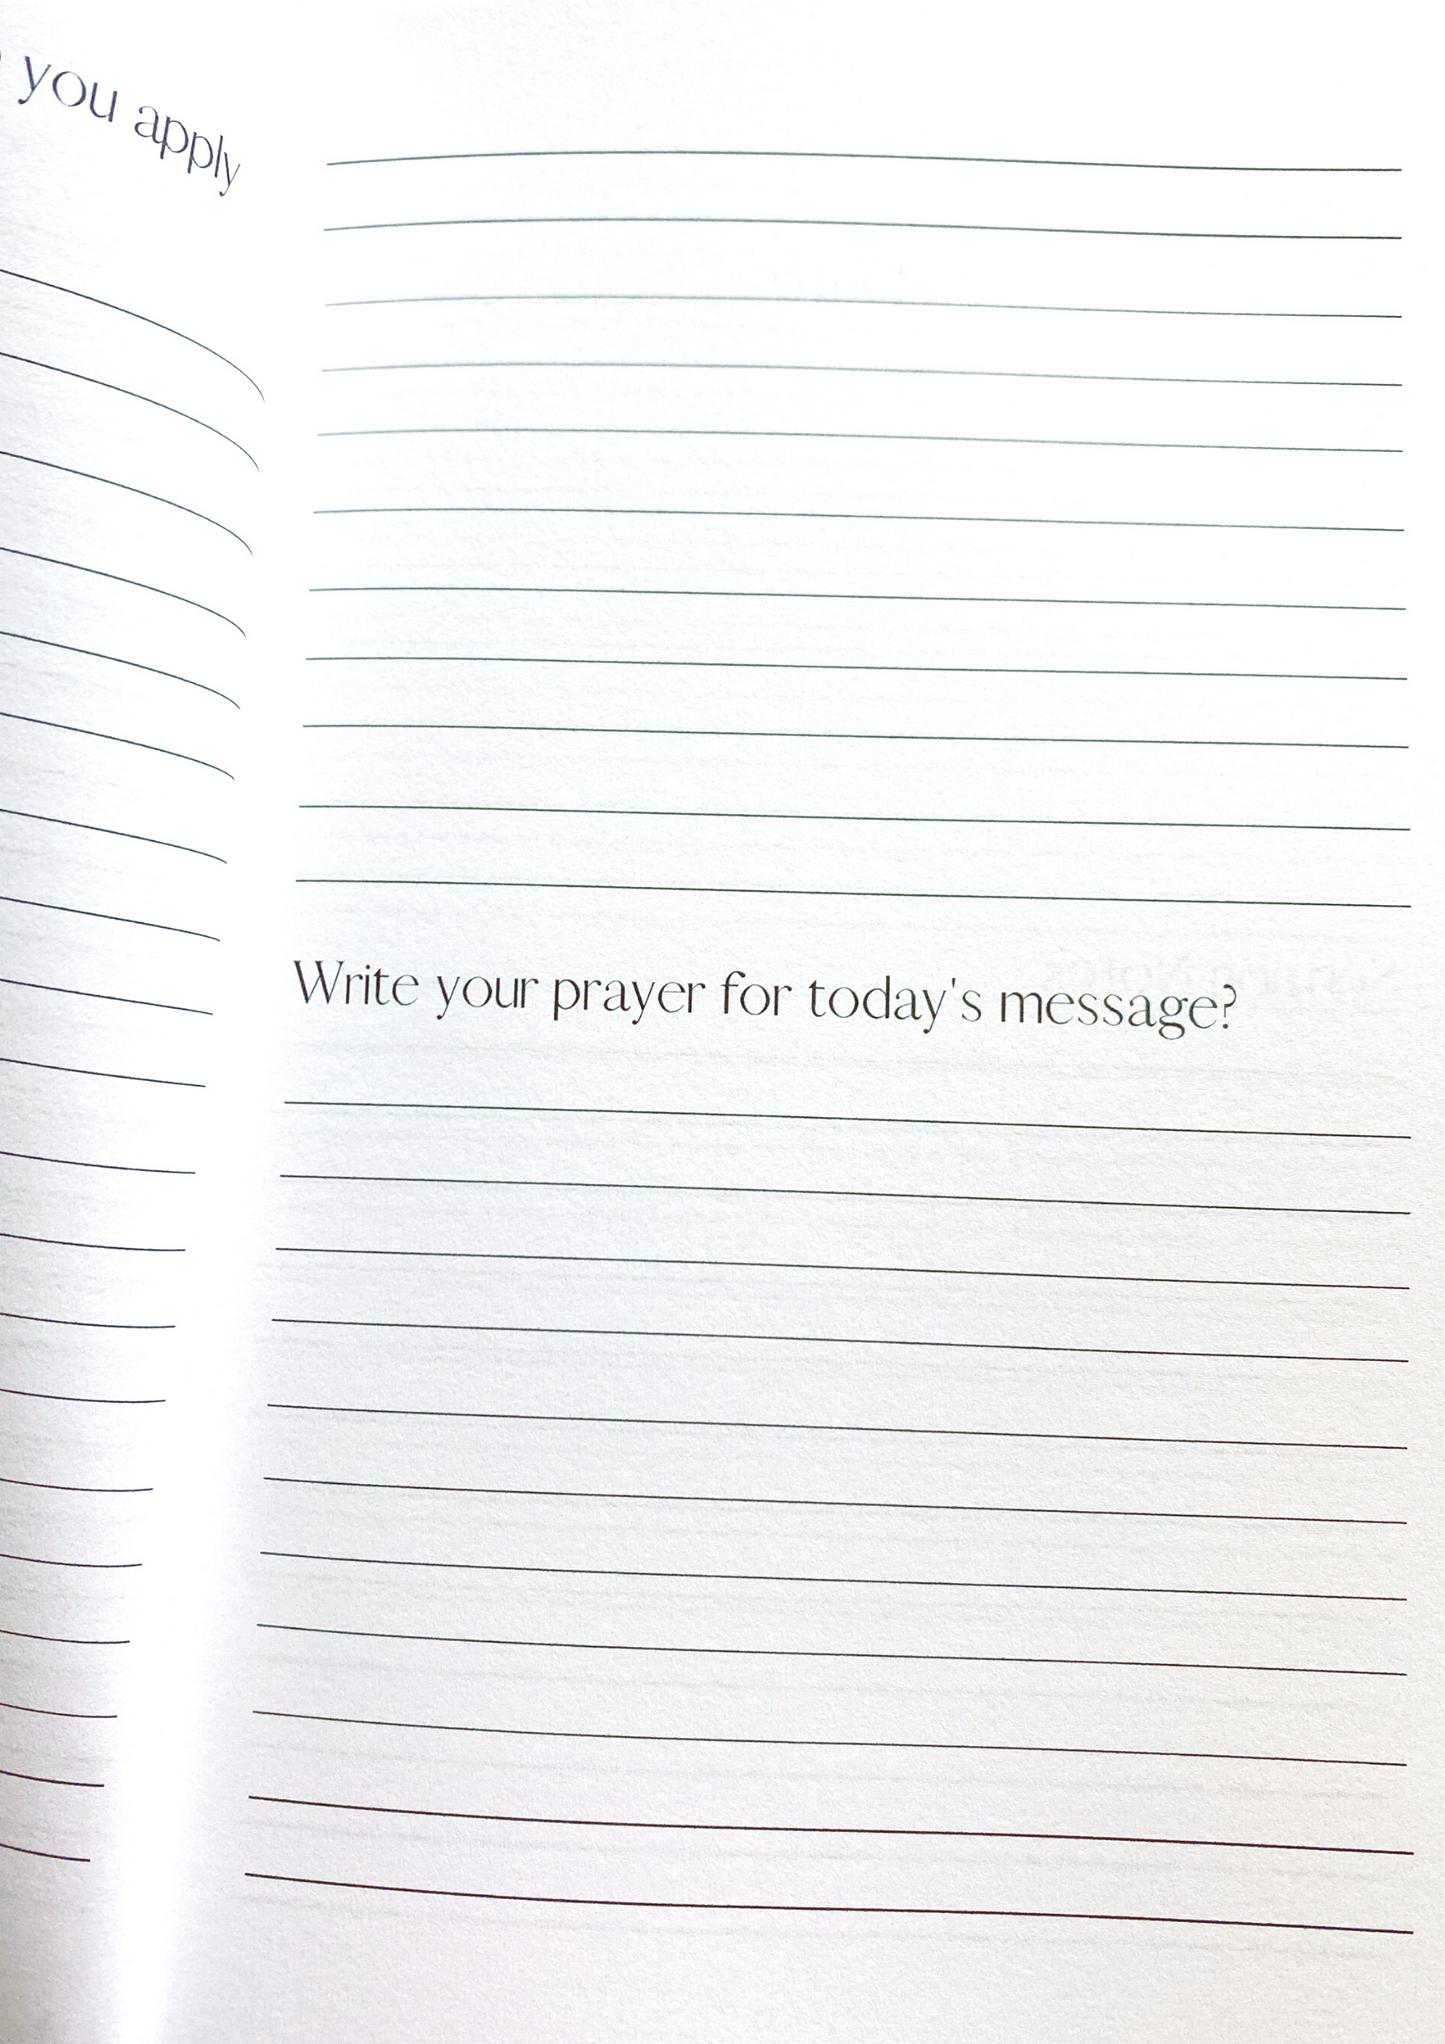 you apply
Write your prayer for today's message?